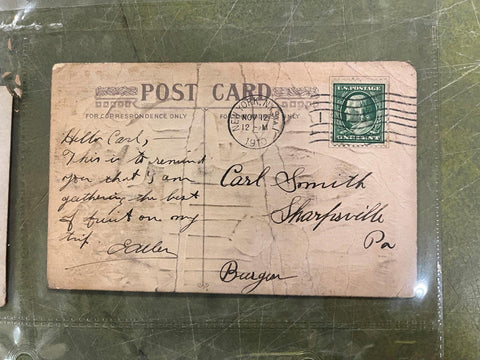 POST CARD
FOR CORRESPONDENCE ONLY
Hello Carl,
This is to remind
you that I am
gathering the best
of fruit on my
trip
NEW YORK, N.Y.
NOV 12
12 M
1910
U.S. POSTAGE
ONE CENT
Carl Smith
Sharpsville
Pa